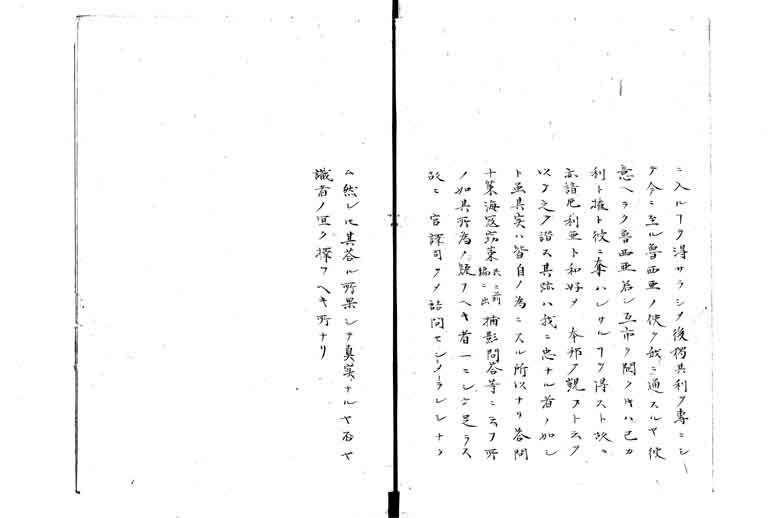 ニ入ルヿヲ得サラシメ後獨其利ヲ專ニシ
テ今ニ至ル魯西亜ノ使ヲ我ニ通スルヤ彼
意ヘラク魯西亜若シ互市ヲ開ク片ハ己カ
利ト権ト彼ニ奪ハレサルヿヲ得スト故ニ
諳厄利亜ト和好メ 本邦ヲ覬フト云フ
以テ之ヲ譖ス其跡ハ我ニ忠ナル者ノ如シ
ト虽其実ハ皆自ノ為ニスル所以ナリ答問
十策海寇窃策共ニ前編ニ出捕影問答等ニ云フ所
ノ如其所為ノ疑フヘキ者一ニシテ足ラス
故ニ 官譯司ヲメ詰問セシメラレシナラ
ム然レ𪜈其答ル所果シテ真実ナルヤ否ヤ
識者ノ宜ク擇フヘキ所ナリ